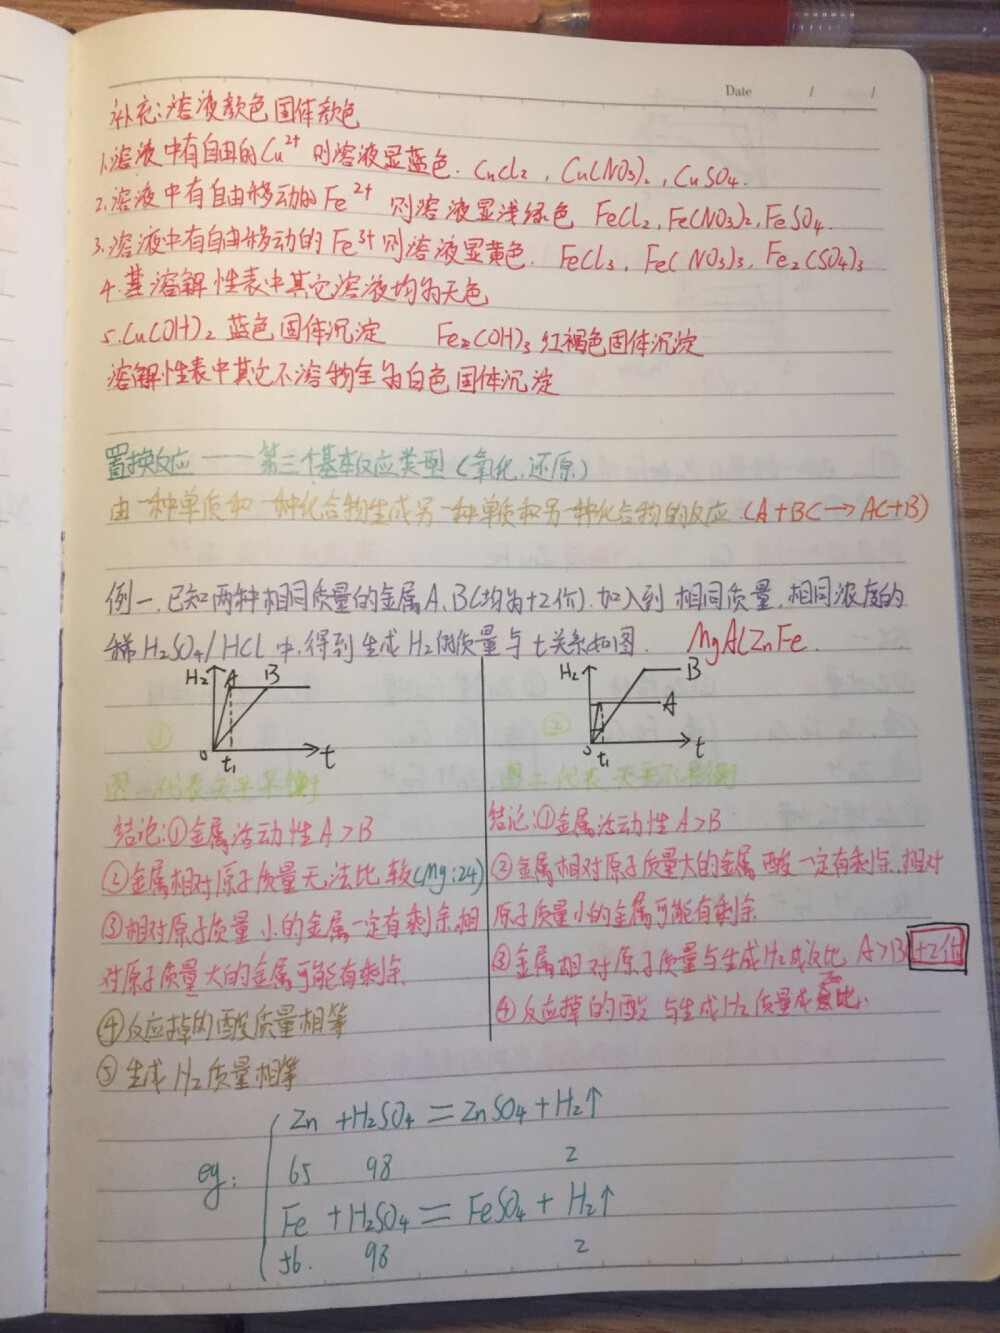 Date / /
补充:溶液颜色固体颜色
1.溶液中有自由的Cu²⁺ 则溶液显蓝色. CuCl₂, Cu(NO₃)₂, CuSO₄.
2.溶液中有自由移动的Fe²⁺ 则溶液显浅绿色 FeCl₂, Fe(NO₃)₂, FeSO₄.
3.溶液中有自由移动的Fe³⁺则溶液显黄色. FeCl₃, Fe(NO₃)₃, Fe₂(SO₄)₃
4. 溶解性表中其它溶液均为无色
5.Cu(OH)₂ 蓝色固体沉淀 Fe₂(OH)₃ 红褐色固体沉淀
溶解性表中其它不溶物全为白色固体沉淀
置换反应 —— 第三个基本反应类型(氧化.还原)
由一种单质和一种化合物生成另一种单质和另一种化合物的反应 (A+BC→AC+B)
例一.已知两种相同质量的金属A、B(均为+2价).加入到相同质量,相同浓度的
稀H₂SO₄/HCl中,得到生成H₂的质量与t关系如图. MgAlZnFe.
H₂ A B
① 0 t₁ t
图一代表天平平衡
结论:①金属活动性A>B
②金属相对原子质量无法比较(Mg:24)
③相对原子质量小的金属一定有剩余.相
对原子质量大的金属可能有剩余
④反应掉的酸质量相等
⑤生成H₂质量相等
H₂ B A
② 0 t₁ t
图二代表天平不平衡
结论:①金属活动性A>B
②金属相对原子质量大的金属 酸一定有剩余.相对
原子质量小的金属可能有剩余
③金属相对原子质量与生成H₂成反比 A>B +2价
④反应掉的酸 与生成H₂质量成正比.
eg:
Zn +H₂SO₄=ZnSO₄+H₂↑
65 98 2
Fe +H₂SO₄=FeSO₄+H₂↑
56. 98 2